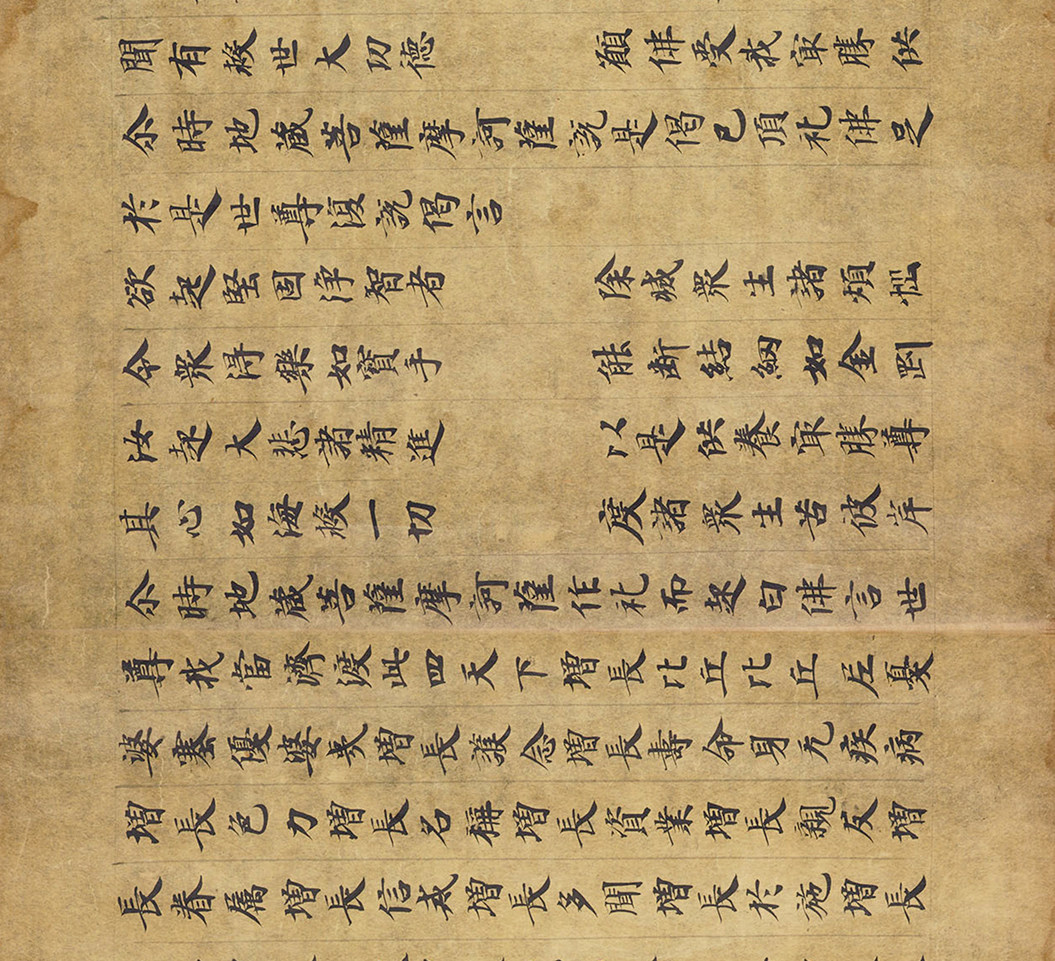 聞有救世大功德　願佛受我冣勝供
尒時地藏菩薩摩訶薩説是偈已頂礼佛足
於是世尊復説偈言
欲起堅固浄智者　除滅衆生諸煩惱
令衆得樂如寶手　能断結網如金剛
汝起大悲諸精進　以是供養冣勝尊
具心如海救一切　度諸衆生苦彼岸
尒時地藏菩薩摩訶薩作礼而起白佛言世
尊我當濟渡此四天下增長比丘比丘尼憂
婆塞優婆夷增長護念增長壽命身无疾病
增長色力增長名稱增長資業增長親友增
長眷属增長信戒增長多聞增長於施增長